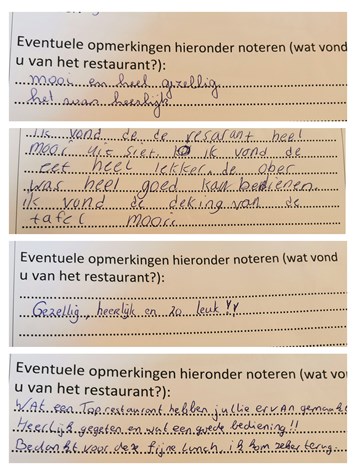 Eventuele opmerkingen hieronder noteren (wat vond
u van het restaurant?):
mooi en heel gezellig
het was heerlijk
ik vond de de resarant heel
mooi uit siet. ik vond de
eet heel lekker. de ober
was heel goed kan bedienen.
ik vond de deking van de
tafel mooi.
Eventuele opmerkingen hieronder noteren (wat vond
u van het restaurant?):
Gezellig, heerlijk en zo leuk!!
Eventuele opmerkingen hieronder noteren (wat vo
u van het restaurant?):
WAt een Toprestaurant hebben jullie ervAn gemaakt
Heerlijk gegeten en wat een goede bediening!!
Bedankt voor deze fijne lunch, ik kom zeker terug.